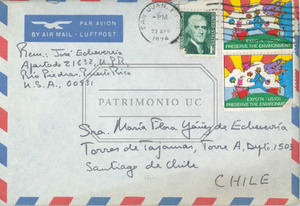 PAR AVION
BY AIR MAIL · LUFTPOST
SAN JUAN, P
PM
23 APR
1974
EXPO74 · USA10c
PRESERVE THE ENVIRONMENT
EXPO74 · USA10c
PRESERVE THE ENVIRONMENT
Rem: José Echeverría
Apartado 21632, U.P.R.
Río Piedras, Puerto Rico
U.S.A., 00931
PATRIMONIO UC
Sra. María Flora Yáñez de Echeverría
Torres de Tajamar, Torre A, Dpto. 1503
Santiago de Chile
CHILE